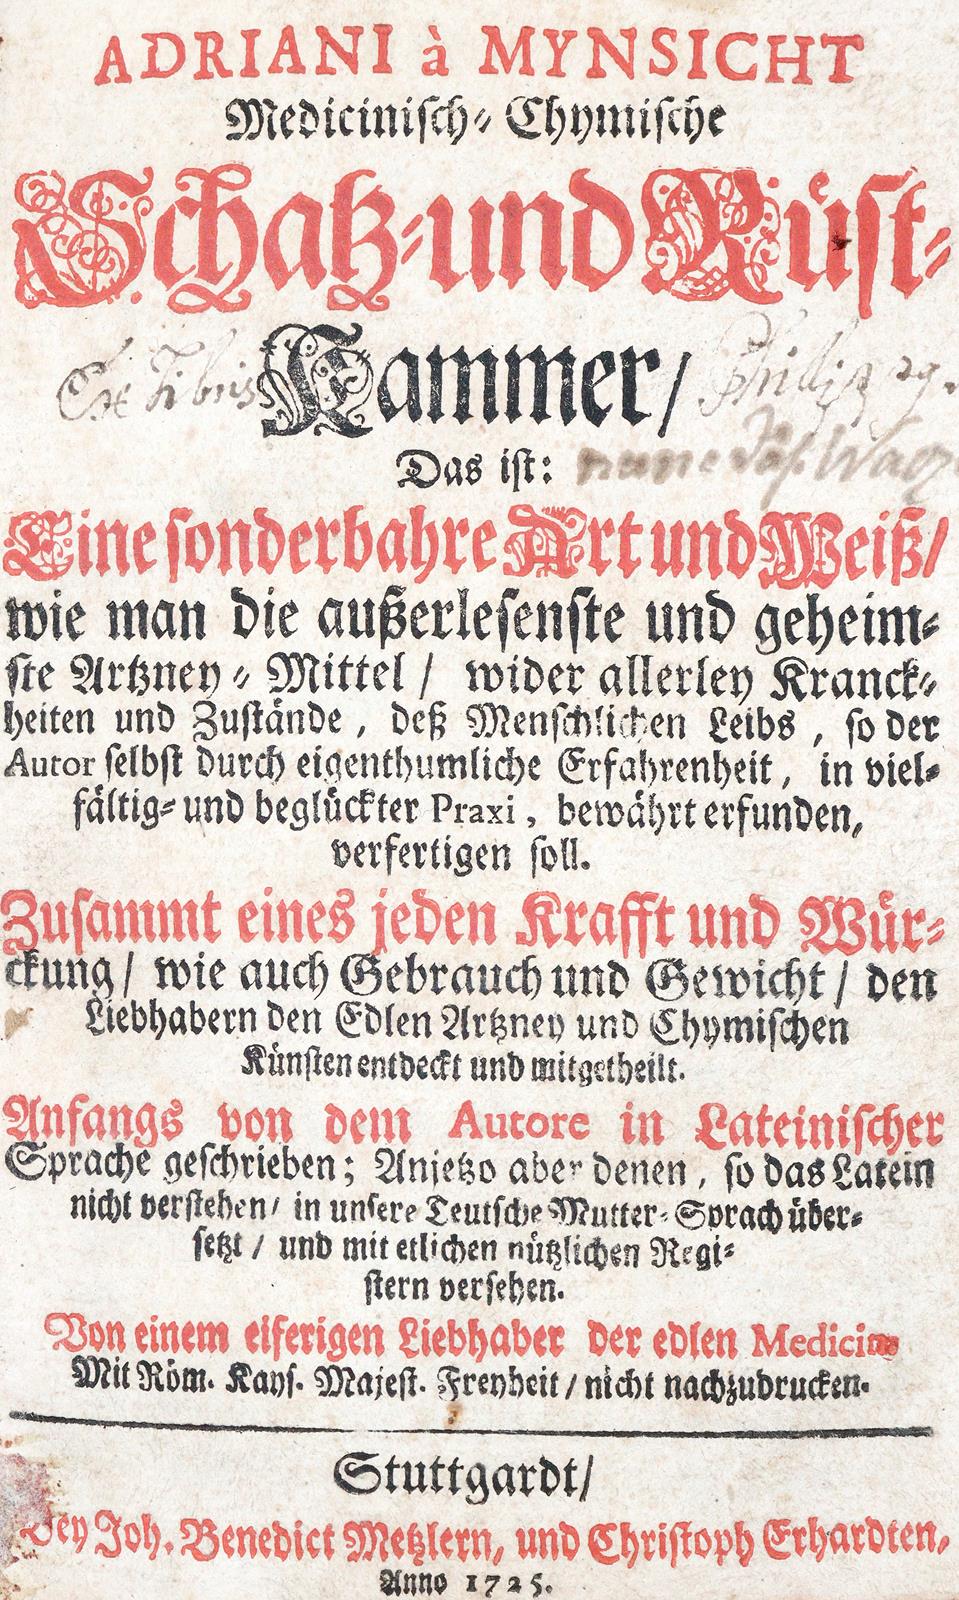 ADRIANI à MYNSICHT
Medicinisch- Chymische
Schatz-und Rüst-
Kammer/
Ex Libris
Das ist:
nunc
Eine sonderbahre Art und Weiß/
wie man die außerlesenste und geheim-
ste Artzney- Mittel / wider allerley Kranck-
heiten und Zustände, deß Menschlichen Leibs, so der
Autor selbst durch eigenthumliche Erfahrenheit, in viel-
fältig- und beglückter Praxi, bewährt erfunden,
verfertigen soll.
Zusammt eines jeden Krafft und Wür-
ckung/ wie auch Gebrauch und Gewicht / den
Liebhabern den Edlen Artzney und Chymischen
Künsten entdeckt und mitgetheilt.
Anfangs von dem Autore in Lateinischer
Sprache geschrieben; Anjetzo aber denen, so das Latein
nicht verstehen/ in unsere Teutsche Mutter-Sprach über-
setzt / und mit etlichen nützlichen Regi-
stern versehen.
Von einem eiferigen Liebhaber der edlen Medicin
Mit Röm. Kays. Majest. Freyheit / nicht nachzudrucken.
Stuttgardt/
Bey Joh. Benedict Metzlern, und Christoph Erhardten,
Anno 1725.